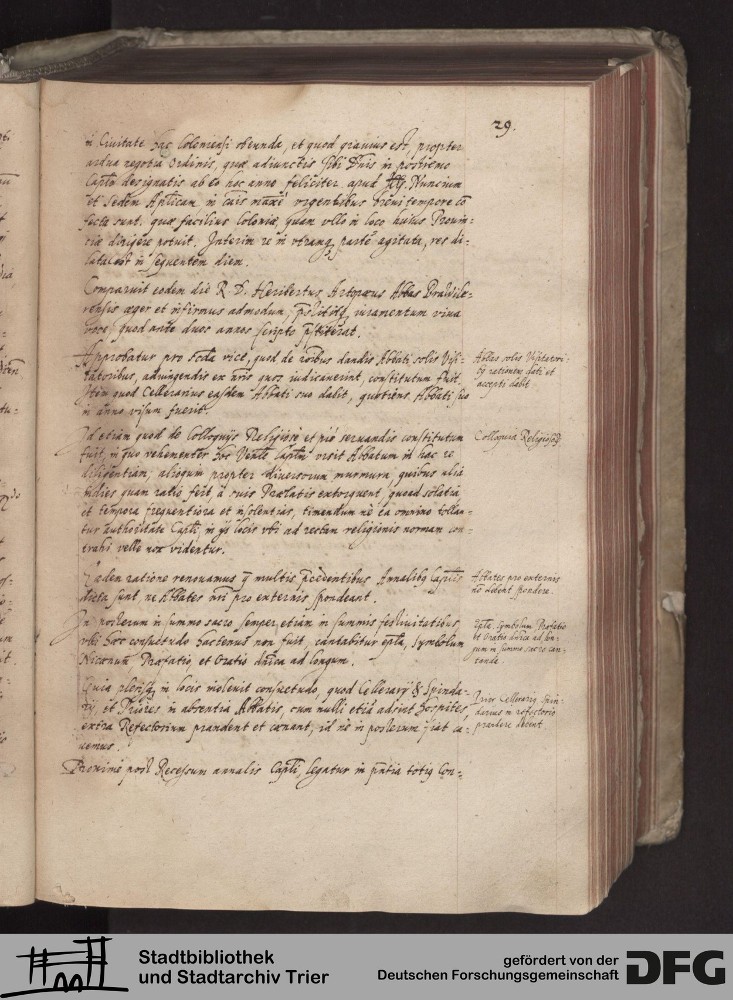 29.
in Ciuitate hac Coloniensi obeunda, et quod grauius est, propter
ardua negotia Ordinis, quæ adiunctis sibi Dnis in postremo
Caplo designatis ab eo hoc anno feliciter apud Nuncium
et Sedem Aplicam in cais maxe vrgentibus breui tempore cō
fecta sunt. quæ facilius Coloniæ, quam vllo in loco huius Prouin:
ciæ dirigere potuit. Interim re in vtramq parte agitata, res di:
lata est in sequentem diem.
Comparuit eodem die R. D. Heribertus Abbas Brawile:
rensis æger et infirmus admodum, iuramentum viua
voce, quod ante duos annos scripto pstiterat.
Approbatur pro scda vice, quod de rōibus dandis Abbati solis Visi:
tatoribus, adiungendis ex nris quos iudicauerint, constitutum fuit.
Item quod Cellerarius easdem Abbati suo dabit, quotiens Abbati suo
in anno visum fuerit.
Abbas solis Visitatori:
bq rationem dati et
accepti debt
Id etiam quod de Colloquijs Religiose et pie seruandis constitutum
fuit, in quo vehementer hoc Venle Caplm vrsit Abbatum in hac re
diligentiam; alioquin propter diuersorum murmura, quibus alia
indies quam ratio fert, à suis Prælatis extorquent, quoad solatia,
et tempora frequentiora et insolentias, timendum nè ea omnino tollan:
tur authoritate Capli, in ijs locis vbi ad rectam religionis normam con:
trahi velle non videntur.
Colloquia Religiosq
Eadem ratione renouamus q multis pcedentibus Annalibq Caplis
dicta sunt, ne Abbates nri pro externis spondeant.
Abbates pro externis
nō debent spondere.
In posterum in summo sacro semper, etiam in summis festiuitatibus
vbi hæc consuetudo hactenus non fuit, cantabitur epla, symbolum
Nicænum Præfatio, et Oratio dnica ad longum.
epla, symbolum Præfatio
et Oratio dnica ad lon:
gum in summo sacro can:
tanda.
Quia plerisq in locis inoleuit consuetudo, quod Cellerarij & Spinda:
rij, et Priores in absentia Abbatis, cum nulli etiā adsint hospites,
extra Refectorium prandent et cœnant, id nè in posterum fiat ca:
uemus.
Prior Cellerarig Spin:
darius in refectorio
prandere debent
Proximè post Recessum annalis Capli, legatur in pntia totiq Con:
Stadtbibliothek
und Stadtarchiv Trier
gefördert von der
Deutschen Forschungsgemeinschaft
DFG